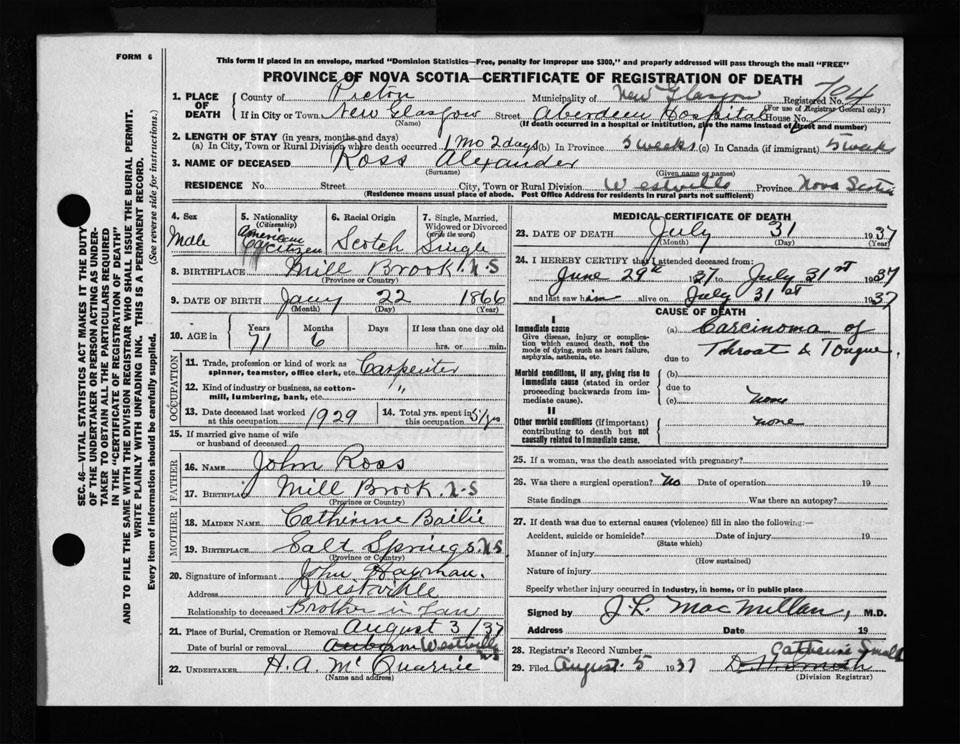 FORM 6
This form if placed in an envelope, marked "Dominion Statistics—Free, penalty for improper use $300," and properly addressed will pass through the mail "FREE"
PROVINCE OF NOVA SCOTIA—CERTIFICATE OF REGISTRATION OF DEATH
1. PLACE OF DEATH
County of Pictou Municipality of New Glasgow Registered No. 704
(For use of Registrar General only)
If in City or Town New Glasgow Street Aberdeen Hospital House No.
(Name) (If death occurred in a hospital or institution, give the name instead of street and number)
2. LENGTH OF STAY (in years, months and days)
(a) In City, Town or Rural Division where death occurred 1 Mo 2 days (b) In Province 5 weeks (c) In Canada (if immigrant) 5 weeks
3. NAME OF DECEASED Ross Alexander
(Surname) (Given name or names)
RESIDENCE No. Street City, Town or Rural Division Westville Province Nova Scotia
(Residence means usual place of abode. Post Office Address for residents in rural parts not sufficient)
4. Sex
Male
5. Nationality
(Citizenship)
American Citizen
6. Racial Origin
Scotch
7. Single, Married, Widowed or Divorced
(Write the word)
Single
8. BIRTHPLACE Mill Brook N.S
(Province or Country)
9. DATE OF BIRTH Jany 22 1866
(Month) (Day) (Year)
10. AGE in Years Months Days If less than one day old
71 6 hrs. or min.
OCCUPATION
11. Trade, profession or kind of work as spinner, teamster, office clerk, etc. Carpenter
12. Kind of industry or business, as cotton-mill, lumbering, bank, etc. "
13. Date deceased last worked at this occupation 1929
14. Total yrs. spent in this occupation 51 yrs
15. If married give name of wife or husband of deceased
FATHER
16. NAME John Ross
17. BIRTHPLACE Mill Brook N-S
(Province or Country)
MOTHER
18. MAIDEN NAME Catherine Bailie
19. BIRTHPLACE Salt Springs N.S.
(Province or Country)
20. Signature of informant John Hayman.
Address Westville
Relationship to deceased Brother in Law
21. Place of Burial, Cremation or Removal August 3/37
Date of burial or removal Auburn Westville N.S
22. UNDERTAKER H. A. McQuarrie
(Name and address)
MEDICAL CERTIFICATE OF DEATH
23. DATE OF DEATH July 31 1937
(Month) (Day) (Year)
24. I HEREBY CERTIFY that I attended deceased from:
June 29th 1937 to July 31st 1937
and last saw him alive on July 31st 1937
CAUSE OF DEATH
I
Immediate cause
Give disease, injury or complication which caused death, not the mode of dying, such as heart failure, asphyxia, asthenia, etc.
(a) Carcinoma of
due to Throat & Tongue.
Morbid conditions, if any, giving rise to immediate cause (stated in order proceeding backwards from immediate cause).
(b)
due to
(c) none
II
Other morbid conditions (if important) contributing to death but not causally related to immediate cause.
none
25. If a woman, was the death associated with pregnancy?
26. Was there a surgical operation? No Date of operation 19
State findings Was there an autopsy?
27. If death was due to external causes (violence) fill in also the following:—
Accident, suicide or homicide? Date of injury 19
(State which)
Manner of injury
(How sustained)
Nature of injury
Specify whether injury occurred in industry, in home, or in public place
Signed by J. R. MacMillan, M.D.
Address Date 19
28. Registrar's Record Number Catherine Small
29. Filed August 5 1937
(Division Registrar)
SEC. 46—VITAL STATISTICS ACT MAKES IT THE DUTY
OF THE UNDERTAKER OR PERSON ACTING AS UNDER-
TAKER TO OBTAIN ALL THE PARTICULARS REQUIRED
IN THE "CERTIFICATE OF REGISTRATION OF DEATH"
AND TO FILE THE SAME WITH THE DIVISION REGISTRAR WHO SHALL ISSUE THE BURIAL PERMIT.
WRITE PLAINLY WITH UNFADING INK. THIS IS A PERMANENT RECORD.
Every item of information should be carefully supplied. (See reverse side for instructions.)